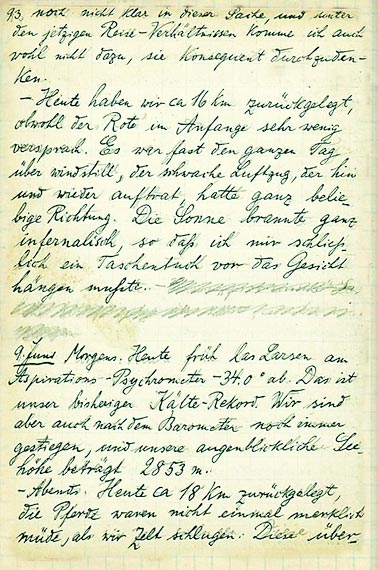 93. noch nicht klar in dieser Sache, und unter
den jetzigen Reise-Verhältnissen komme ich auch
wohl nicht dazu, sie konsequent durchzuden-
ken.
- Heute haben wir ca 16 km zurückgelegt,
obwohl der Rote im Anfange sehr wenig
versprach. Es war fast den ganzen Tag
über windstill, der schwache Luftzug, der hin
und wieder auftrat, hatte ganz belie-
bige Richtung. Die Sonne brannte ganz
infernalisch, so daß ich mir schließ-
lich ein Taschentuch vor das Gesicht
hängen mußte. -
9. Juni Morgens. Heute früh las Larsen am
Aspirations-Psychrometer -34.0° ab. Das ist
unser bisheriger Kälte-Rekord. Wir sind
aber auch nach dem Barometer noch immer
gestiegen, und unsere augenblickliche See-
höhe beträgt 2853 m.
- Abends. Heute ca 18 km zurückgelegt,
die Pferde waren nicht einmal merklich
müde, als wir Zelt schlugen. Diese über-